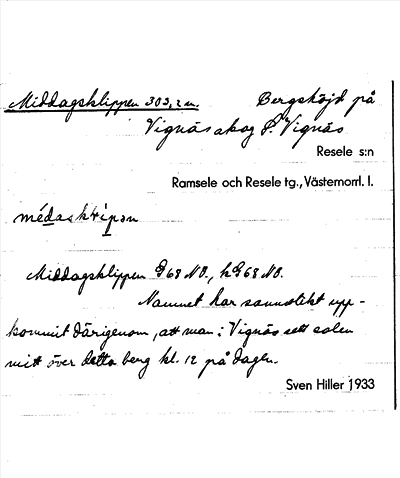 Middagsklippen 303,2 m. Bergshöjd på
Vignäs skog S. Vignäs
Resele s:n
Ramsele och Resele tg., Västernorrl. l.
Middagsklippen 68 NO., 68 NO.
Namnet har sannolikt upp-
kommit därigenom, att man i Vignäs sett solen
mitt över detta berg kl. 12 på dagen.
Sven Hiller 1933